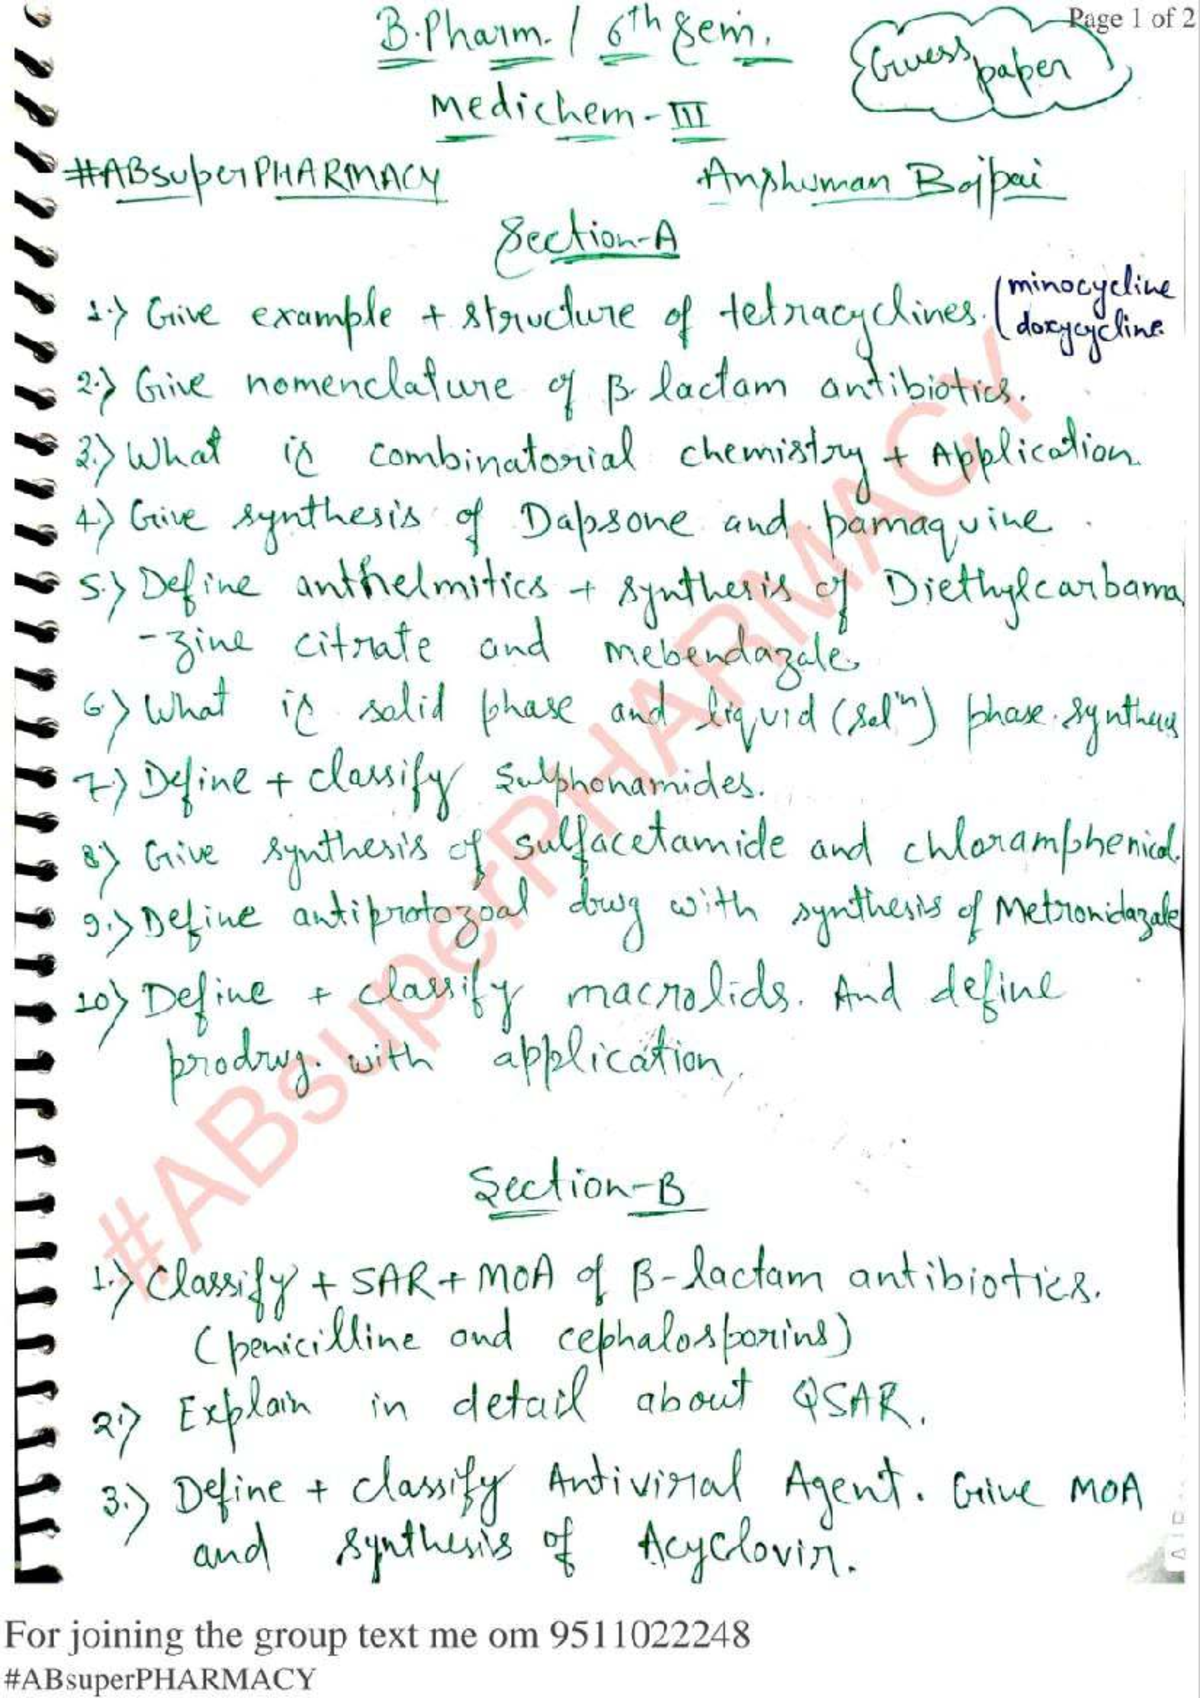 Page 1 of 2
B.Pharm. / 6th Sem.
Guess paper
Medichem-III
#ABsuperPHARMACY
Anshuman Bajpai
Section-A
1.) Give example + structure of tetracyclines. (minocycline
doxycycline
2.) Give nomenclature of β lactam antibiotics.
3.) What is combinatorial chemistry + Application.
4.) Give synthesis of Dapsone and pamaquine.
5.) Define anthelmitics + synthesis of Diethylcarbama
-zine citrate and mebendazale.
6.) What is solid phase and liquid (solⁿ) phase synthesis
7.) Define + classify Sulphonamides.
8) Give synthesis of sulfacetamide and chloramphenicol.
9.) Define antiprotozoal drug with synthesis of Metronidazale
10) Define + classify macrolids. And define
prodrug. with application.
#ABsuperPHARMACY
Section-B
1.) Classify + SAR + MOA of β-lactam antibiotics.
(penicilline and cephalosporins)
2.) Explain in detail about QSAR.
3.) Define + classify Antiviral Agent. Give MOA
and synthesis of Acyclovir.
For joining the group text me om 9511022248
#ABsuperPHARMACY